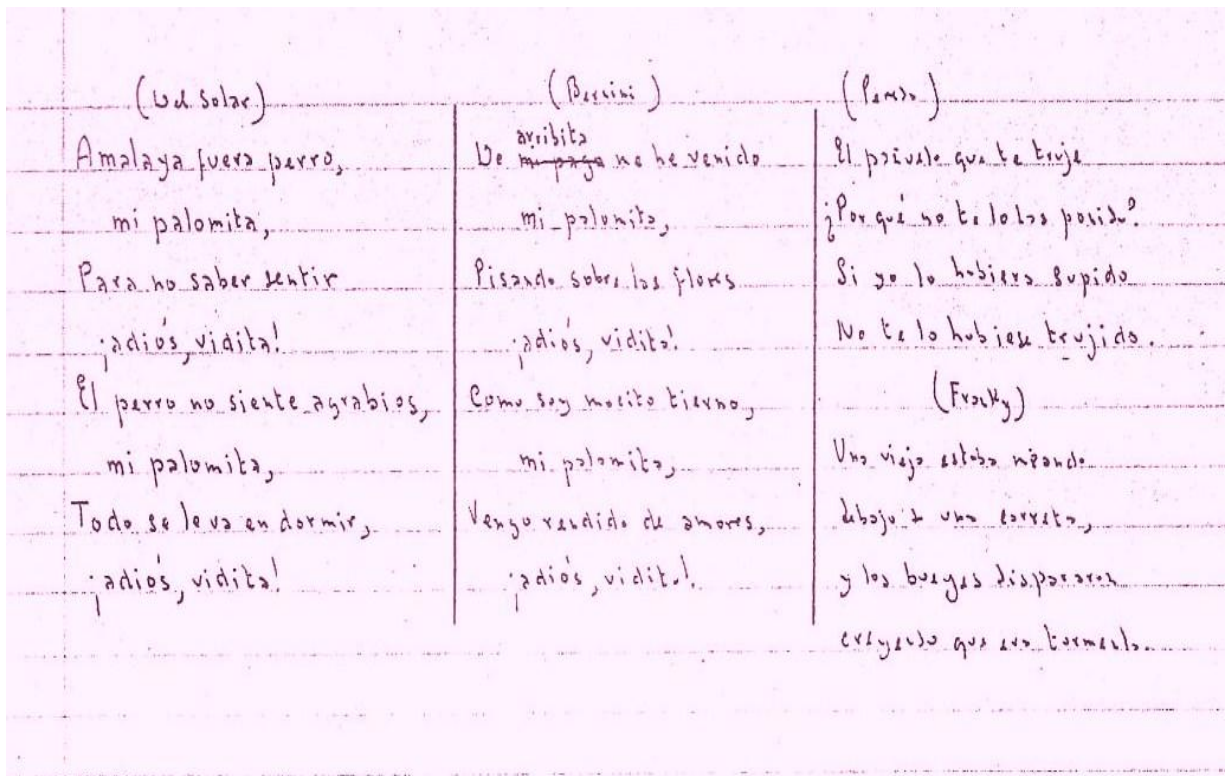 (Del Solar)
Amalaya fuera perro,
mi palomita,
Para no saber sentir
¡adiós, vidita!
El perro no siente agrabios,
mi palomita,
Todo se le va en dormir,
¡adiós, vidita!
(Bernini)
arribita
De mi pago me he venido
mi palomita,
Pisando sobre las flores
¡adiós, vidita!
Como soy mocito tierno,
mi palomita,
Vengo rendido de amores,
¡adiós, vidita!
El paivelo que te truje
¿Por qué no te lo has posido?
Si yo lo hubiera supido
No te lo hubiese trujido.
Una vieja estaba meando
debajo de una carreta,
y los bueyes dispararon
creyendo que era tormenta.